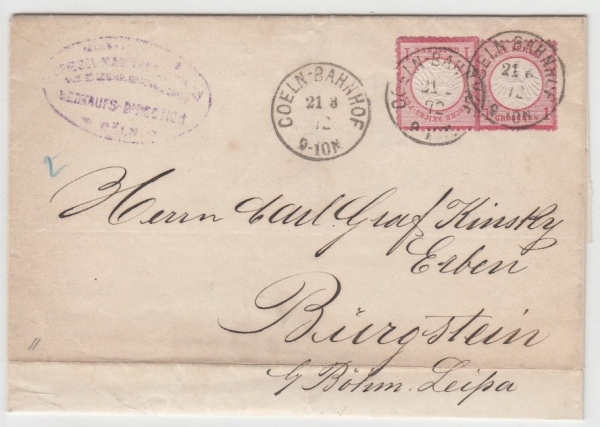 VERKAUFS-DIRECTION
COELN-BAHNHOF
21 8
72
9-10N
COELN-BAHNHOF
21
72
9-10N
COELN-BAHNHOF
21 8
72
9-10N
Herrn Carl Graf Kinsky
Erben
Bürgstein
b/ Böhm. Leipa